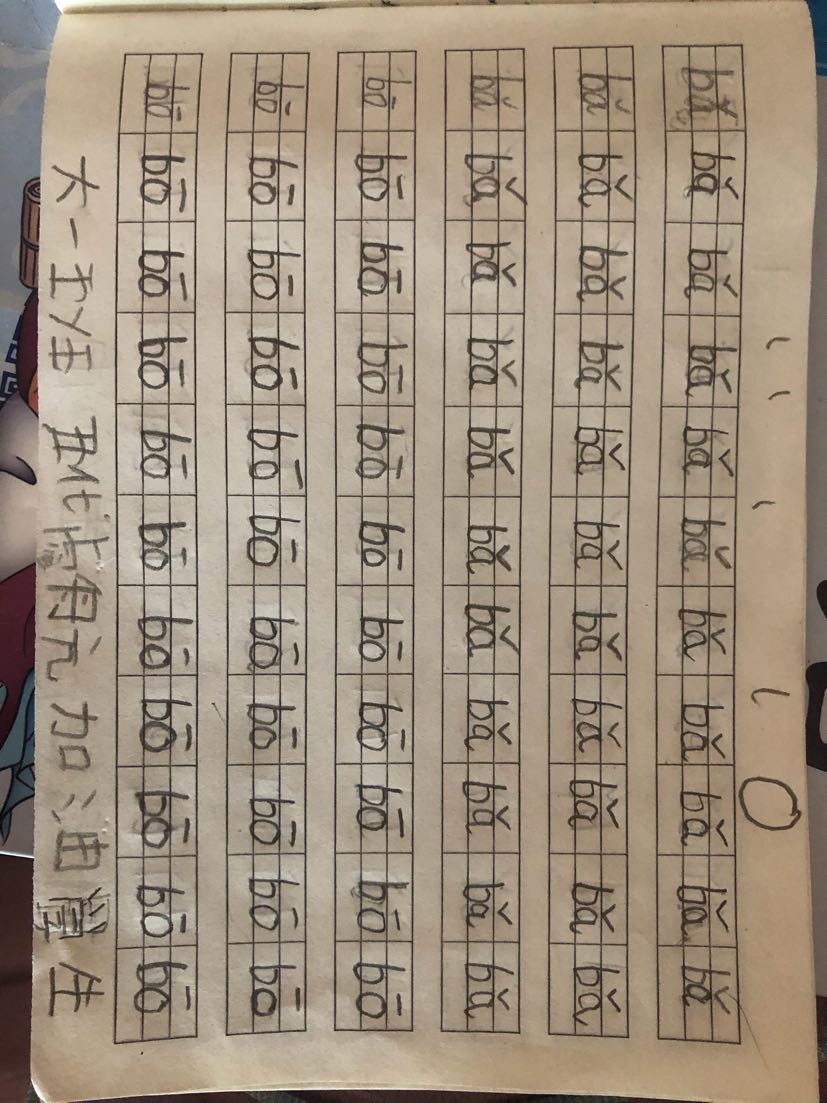 bǎ bǎ bǎ bǎ bǎ bǎ bǎ bǎ bǎ bǎ bǎ
bǎ bǎ bǎ bǎ bǎ bǎ bǎ bǎ bǎ bǎ bǎ
bǎ bǎ bǎ bǎ bǎ bǎ bǎ bǎ bǎ bǎ bǎ
bō bō bō bō bō bō bō bō bō bō bō
bō bō bō bō bō bō bō bō bō bō bō
bō bō bō bō bō bō bō bō bō bō bō
大一 加油 生